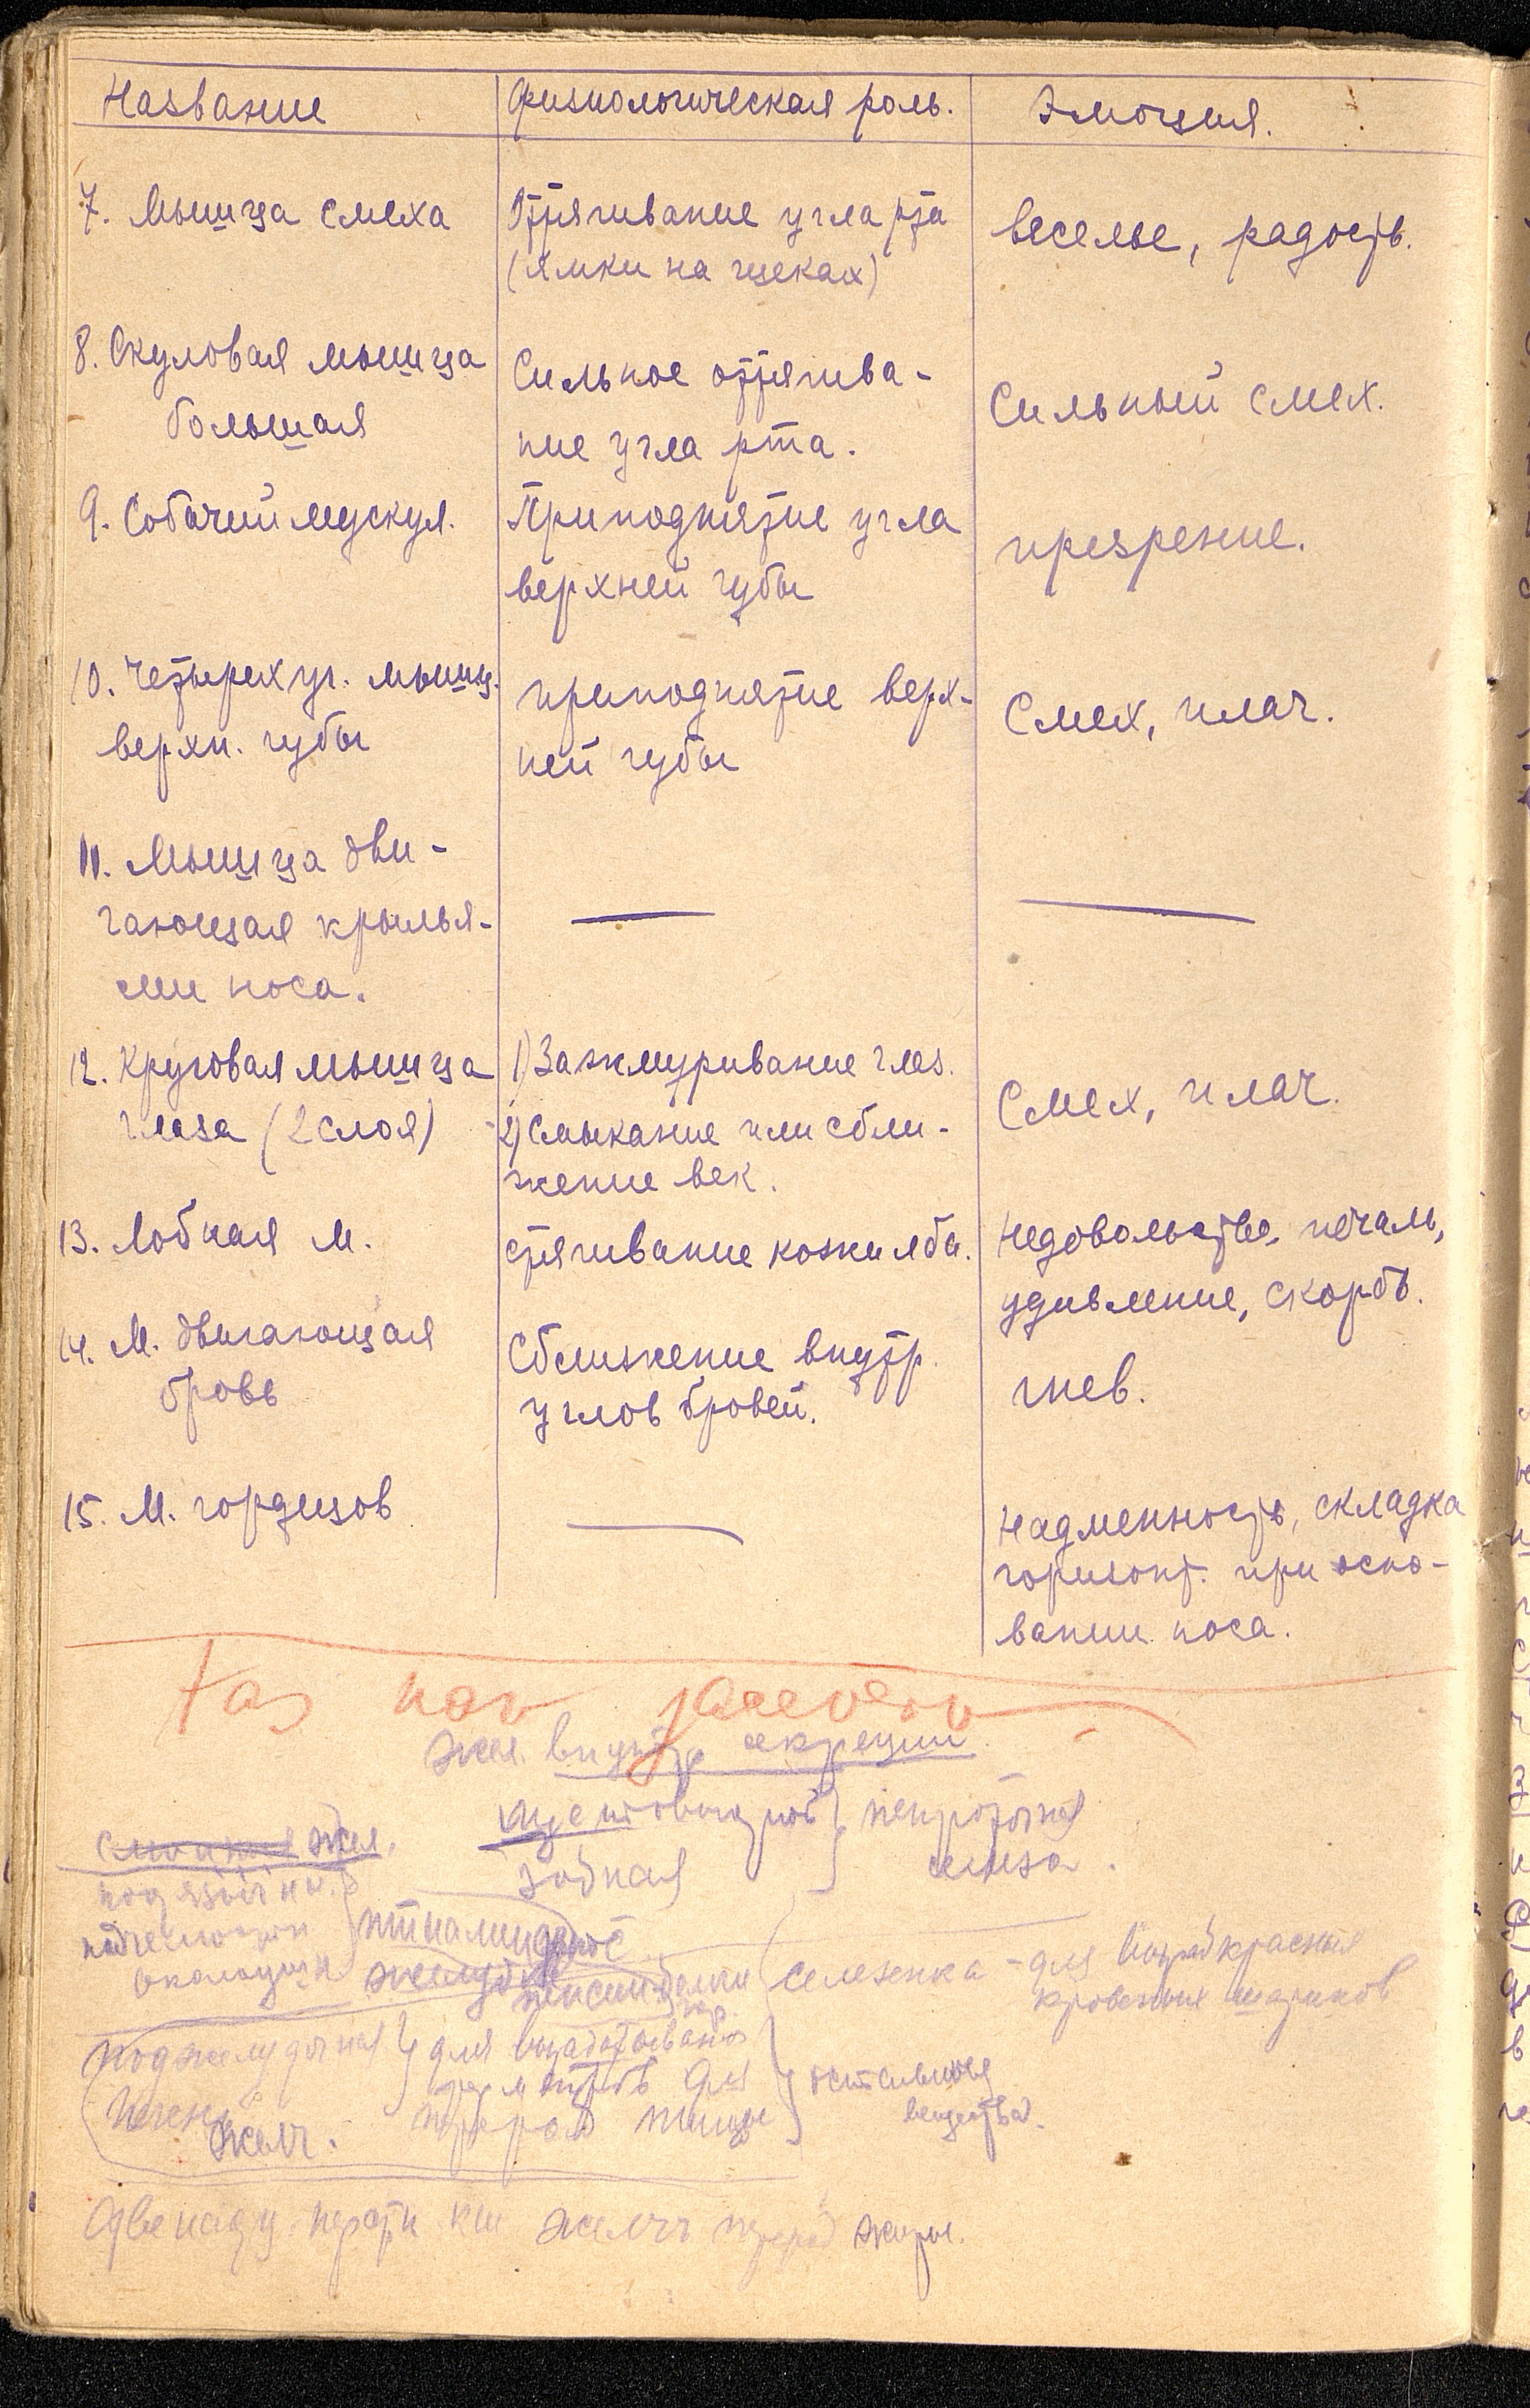 Название Физиологическая роль. Эмоция.
7. Мышца смеха
Оттягивание угла рта
(ямки на щеках)
веселье, радость.
8. Скуловая мышца
большая
Сильное оттягива-
ние угла рта.
Сильный смех.
9. Собачий мускул.
Приподнятие угла
верхней губы
презрение.
10. Четырехуг. мышц.
верхн. губы
приподнятие верх-
ней губы
Смех, плач.
11. Мышца дви-
гающая крылья-
ми носа.
—
—
12. Круговая мышца
глаза (2 слоя)
1) Зажмуривание глаз.
2) Смыкание или сбли-
жение век.
Смех, плач.
13. Лобная м.
стягивание кожи лба.
Недовольство, печаль,
удивление, скорбь.
14. М. двигающая
бровь
Сближение внутр.
углов бровей.
гнев.
15. М. гордецов
—
Надменность, складка
горизонт. при осно-
вании носа.
tas nav
жел. внутр секреции.
щитовидной
зобная
слюнная жел.
подязычн.
околоушн.
птиалин
желуд
пепсин
селезенка - для вырабкрасных
кровенных шариков
поджелудочная
для вырабатывания
для
пищи
остальные
вещества.
Печень
желч.
Двенадц. перстн. киш желчь перераб жиры.